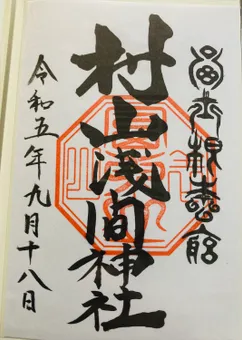 冨士根本宮
村山浅間神社
令和五年九月十八日